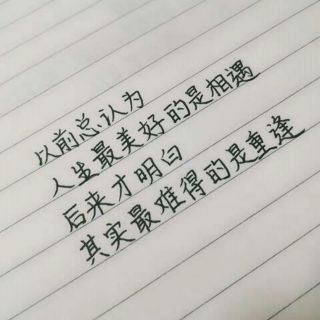 以前总认为
人生最美好的是相遇
后来才明白
其实最难得的是重逢